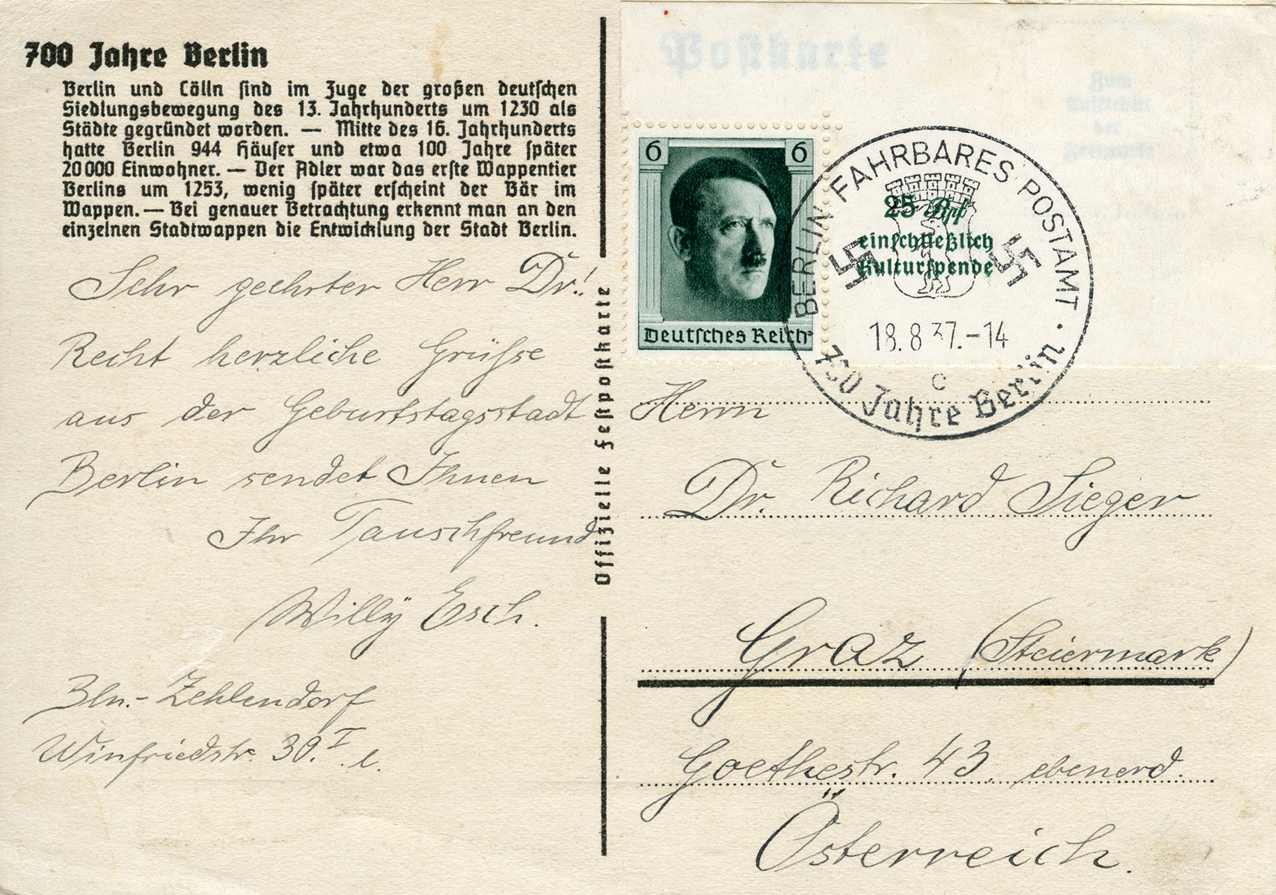 700 Jahre Berlin
Berlin und Cölln sind im Zuge der großen deutschen
Siedlungsbewegung des 13. Jahrhunderts um 1230 als
Städte gegründet worden. — Mitte des 16. Jahrhunderts
hatte Berlin 944 Häuser und etwa 100 Jahre später
20000 Einwohner. — Der Adler war das erste Wappentier
Berlins um 1253, wenig später erscheint der Bär im
Wappen. — Bei genauer Betrachtung erkennt man an den
einzelnen Stadtwappen die Entwicklung der Stadt Berlin.
Sehr geehrter Herr Dr.!
Recht herzliche Grüße
aus der Geburtstagsstadt
Berlin sendet Ihnen
Ihr Tauschfreund
Willÿ Esch.
Bln.-Zehlendorf
Winfriedstr. 30. I l.
Offizielle Festpostkarte
Postkarte
Zum
Aufkleben
der
Freimarke
6 6
Deutsches Reich
25 Rpf
einschließlich
Kulturspende
BERLIN FAHRBARES POSTAMT
18.8.37.-14
c
700 Jahre Berlin
Herrn
Dr. Richard Sieger
Graz (Steiermark)
Goethestr. 43. ebenerd.
Österreich.